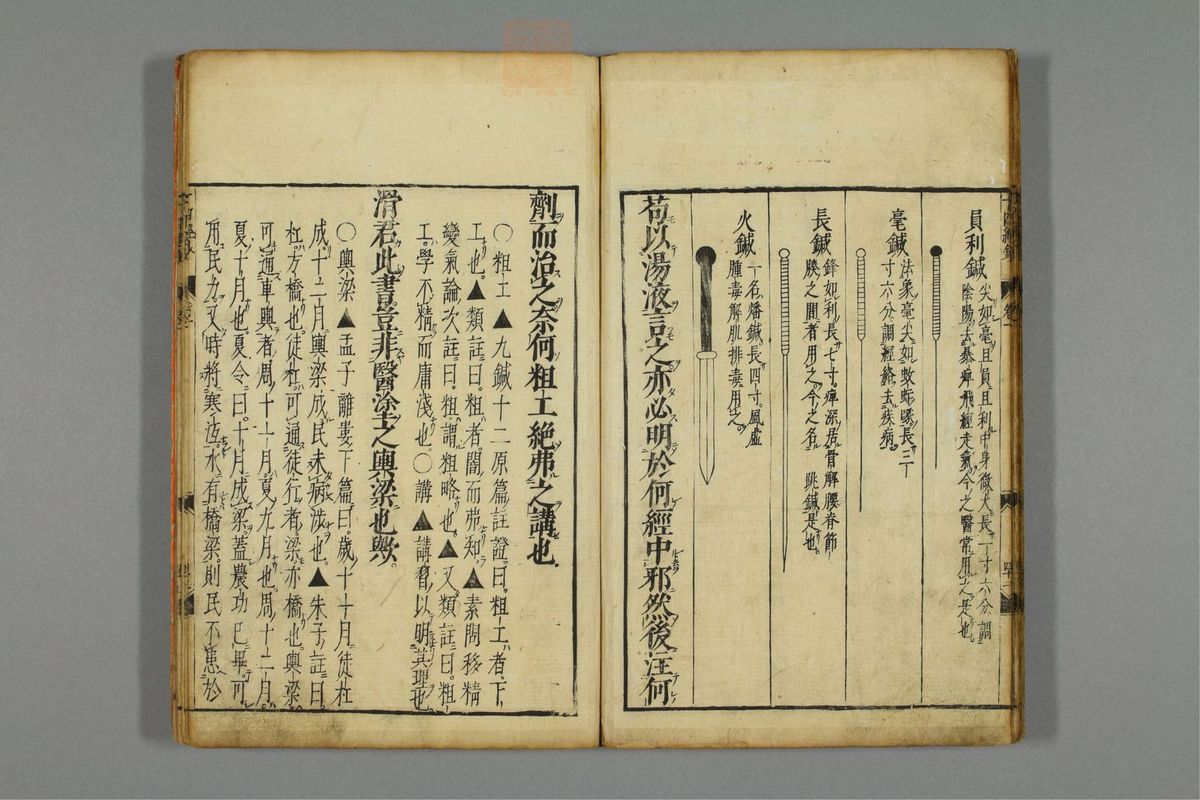 員利鍼
尖如毫且員且利中身微大長一寸六分調
陰陽去暴痺飛經走氣今之醫常用之是也
毫鍼
法象毫尖如蚊虻喙長三
寸六分調經絡去疾病
長鍼
鋒如利長七寸痺深居骨解腰脊節
腠之間者用之今之名跳鍼是也
火鍼
一名燔鍼長四寸風虛
腫毒解肌排毒用之
苟以湯液言之亦必明於何經中邪然後注何
劑而治之奈何粗工絶弗之講也
○粗工▲九鍼十二原篇註證曰粗工者下
工也▲類註曰粗者闇而弗知▲素問移精
變氣論次註曰粗謂粗略也▲又類註曰粗
工學不精而庸淺也○講▲講習以明其理也
滑君此書豈非醫塗之輿梁也歟
○輿梁▲孟子離婁下篇曰歲十一月徒杠
成十二月輿梁成民未病涉也▲朱子註曰
杠方橋也徒杠可通徒行者梁亦橋也輿梁
可通車輿者周十一月夏九月也周十二月
夏十月也夏令曰十月成梁蓋農功已畢可
用民力又時將寒沍水有橋梁則民不患於